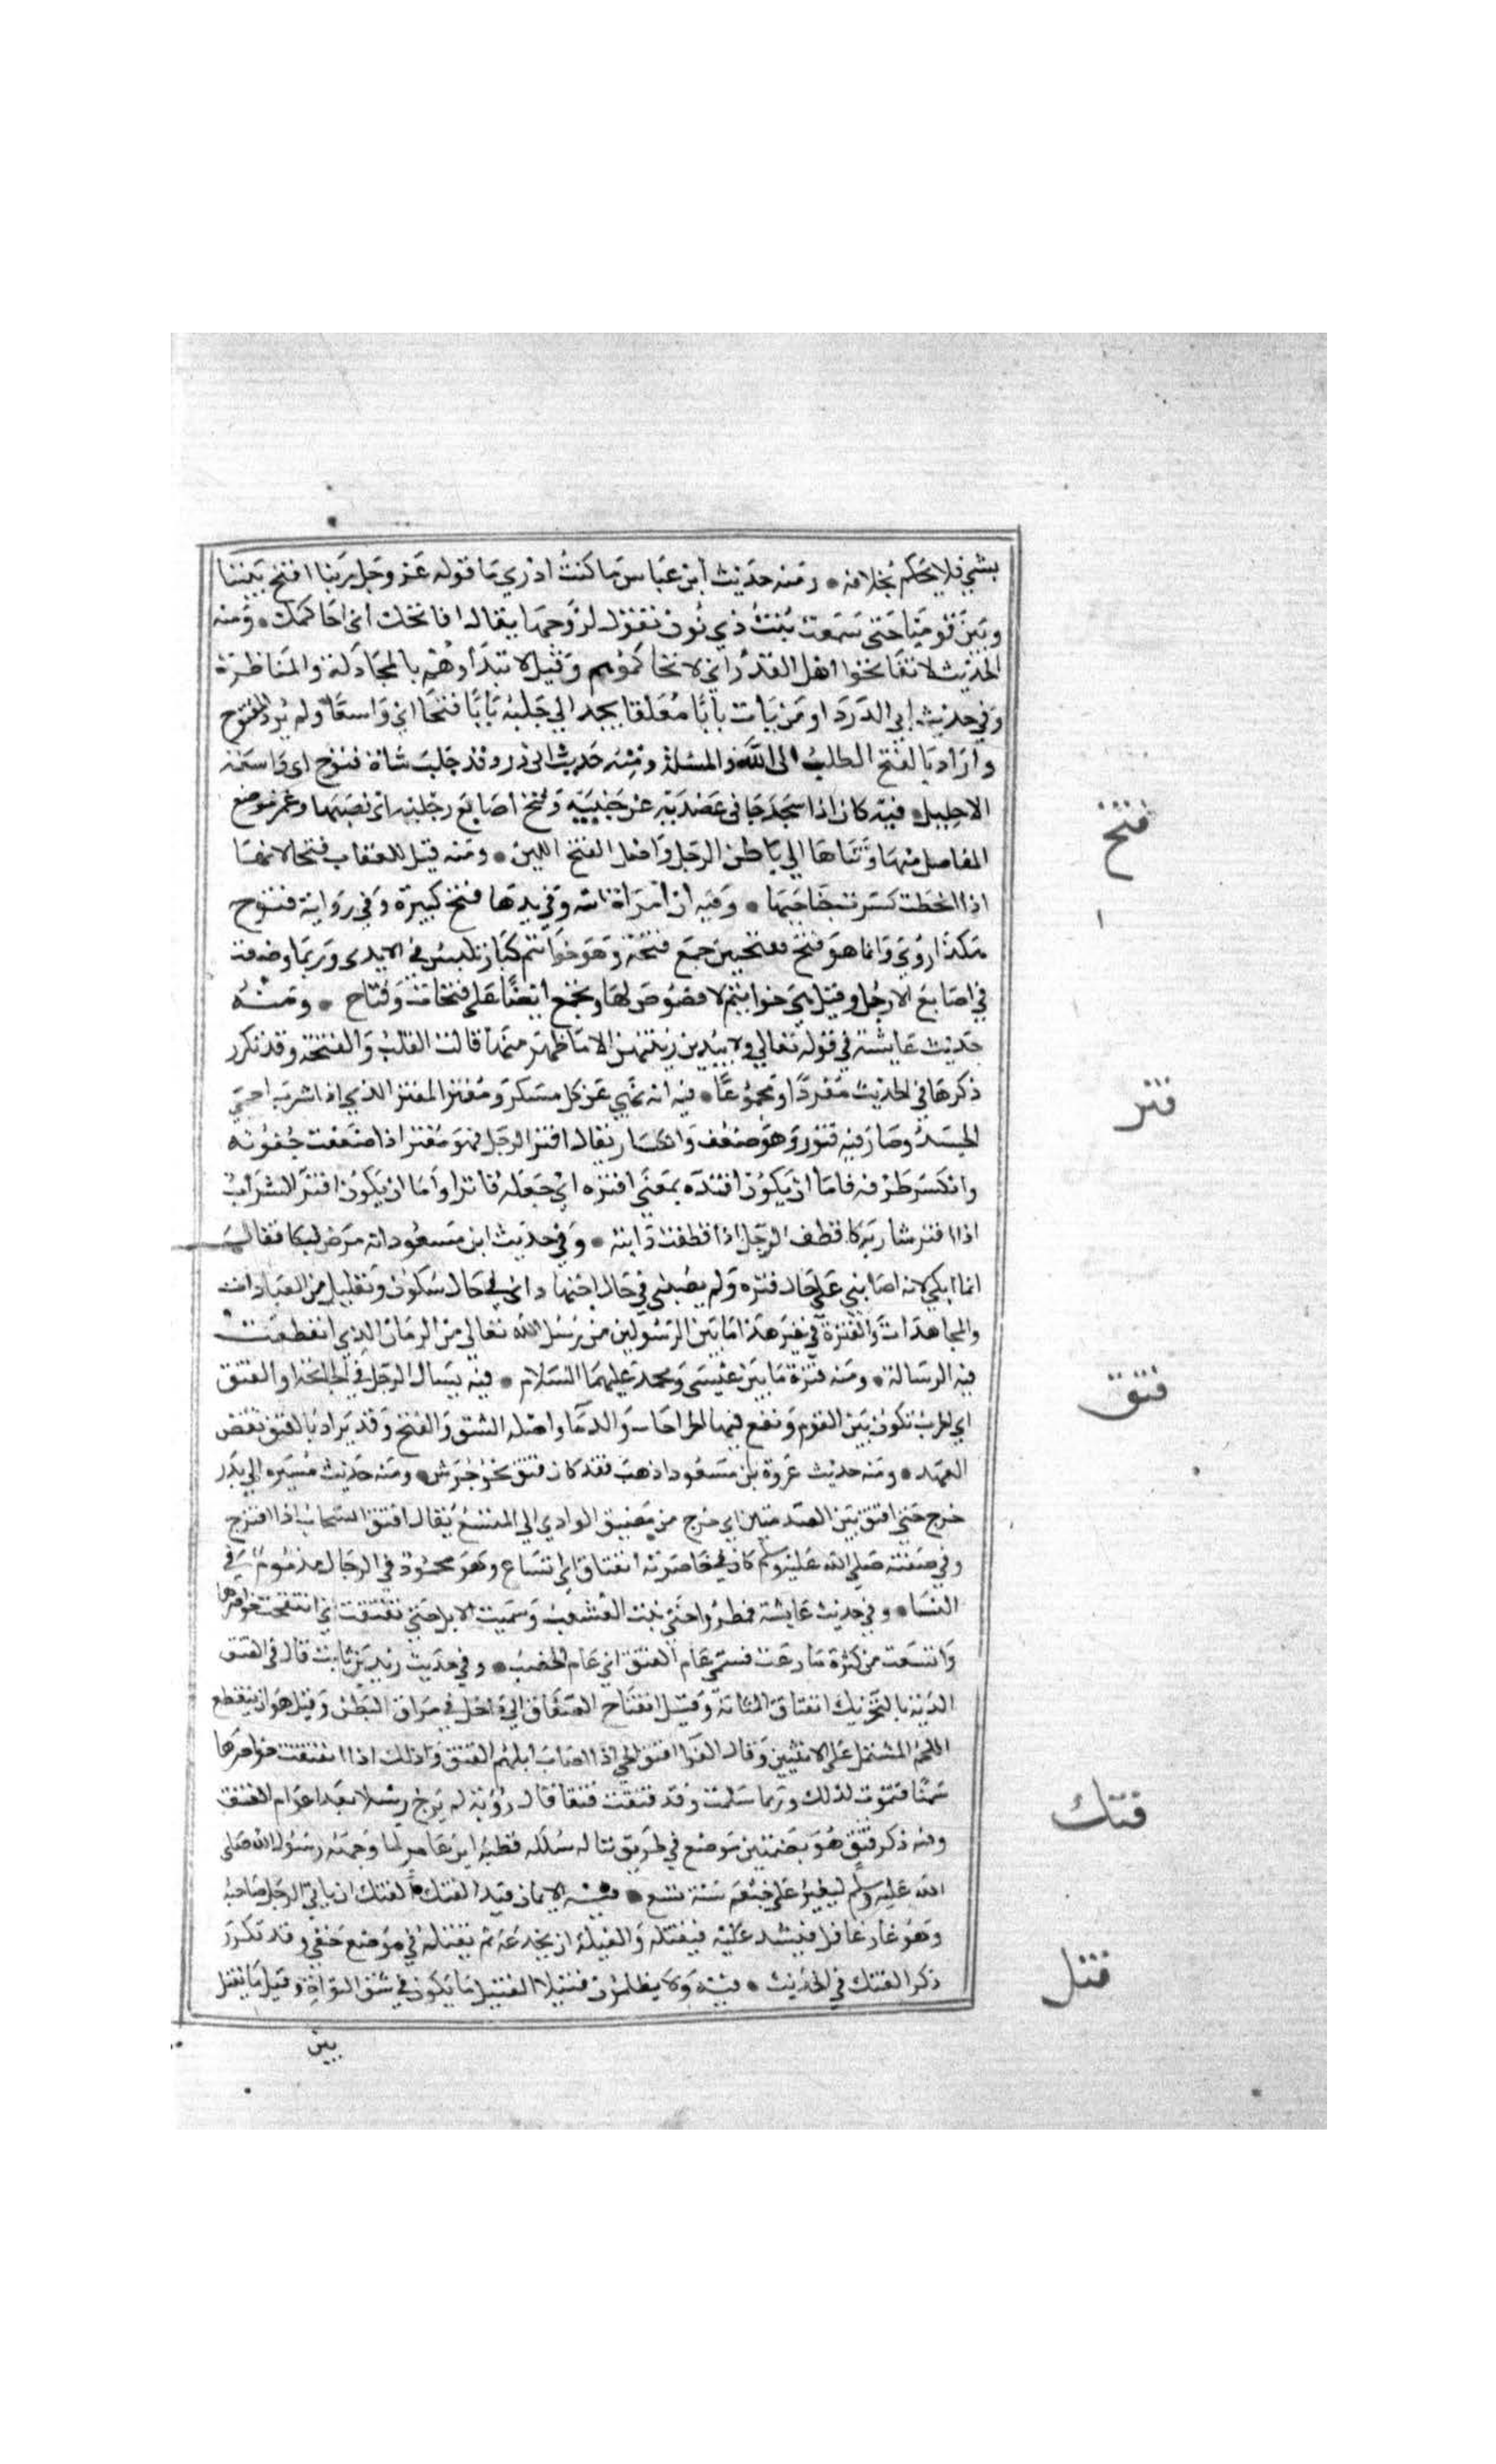 بشي فلا يحكم بخلافه • ومنه حديث ابن عباس ما كنت ادري ما قوله عز وجل ربنا افتح بيننا
وبين قومنا حتى سمعت بنت ذي يزن تقول لزوجها يقال افاتحك اي احاكمك • ومنه
الحديث لا تفاتحوا اهل القدر اي لا تحاكموهم وقيل لا تبدأوهم بالمجادلة والمناظرة
وفي حديث ابي الدرداء ومن يأت بابا مغلقا يجد الي جنبه بابا فتحا اي واسعا ولم يرد المفتوح
واراد بالفتح الطلب الى الله والمسئلة ومنه حديث ابي ذر وقد حلب شاة فتوح اي واسعة
الاحليل • فيه كان اذا سجد جافى عضديه عن جنبيه وفتخ اصابع رجليه اي نصبها وغمز موضع
المفاصل منها وثناها الي باطن الرجل واصل الفتخ اللين • ومنه قيل للعقاب فتخا لانها
اذا انحطت كسرت جناحيها • وفيه ان امراة اتته وفي يدها فتخ كبيرة وفي رواية فتوح
هكذا روي وانما هو فتخ بفتحتين جمع فتخة وهو خواتيم كبار تلبس في الايدى وربما وضعت
في اصابع الارجل وقيل هي خواتيم لا فصوص لها ويجمع ايضا على فتخات وفتاخ • ومنه
حديث عايشة في قوله تعالي ولا يبدين زينتهن الا ما ظهر منها قالت القلب والفتخة وقد تكرر
ذكرها في الحديث مفردا ومجموعا • فيه انه نهي عن كل مسكر ومفتر المفتر الذي اذا شرب احمى
الجسد وصار فيه فتور وهو ضعف وانكسار يقال افتر الرجل فهو مفتر اذا ضعفت جفونه
وانكسر طرفه فاما ان يكون افتره بمعنى افتره اي جعله فاترا واما ان يكون افتر الشراب
اذا افتر شاربه كاقطف الرجل اذا قطفت دابته • وفي حديث ابن مسعود انه مرض فبكا فقال
انما ابكي لانه اصابني على حال فترة ولم يصبني في حال اجتهاد اي في حال سكون وتقليل من العبادات
والمجاهدات والفترة في غير هذا ما بين الرسولين من رسل الله تعالي من الزمان الذي انقطعت
فيه الرسالة • ومنه فترة ما بين عيسى ومحمد عليهما السلام • فيه يسال الرجل في الجائحة او الفتق
اي الحرب تكون بين القوم وتقع فيها الجراحات والدما واصله الشق والفتح وقد يراد بالفتق نقض
العهد • ومنه حديث عروة بن مسعود اذهب فقد كان فتق نحو جرش • ومنه حديث مسيره الي بدر
خرج حتى افتق بين الصدمتين اي خرج من مضيق الوادي الي المتسع يقال افتق السحاب اذا انفرج
وفي صفته صلى الله عليه وسلم كان في خاصرته انفتاق اي اتساع وهو محمود في الرجال مذموم في
النسا • وفي حديث عايشة فمطروا حتى نبت العشب وسمنت الابل حتى تفتقت اي انتفخت خواصرها
واتسعت من كثرة ما رعت فسمي عام الفتق اي عام الخصب • وفي حديث زيد بن ثابت قال في الفتق
الدية بالتحريك انفتاق المثانة وقيل انفتاح الصفاق الي داخل في مراق البطن وقيل هو ان ينقطع
اللحم المشتمل على الانثيين وقال الفرا افتق الحي اذا اصاب ابلهم الفتق وذلك اذا انفتقت خواصرها
سمنا فتموت لذلك وربما سلمت وقد فتقت فتقا قال رؤبة لم ترج رسلا بعد اعوام الفتق
وفيه ذكر فتق هو بضمتين موضع في طريق تبالة سلكه قطبة ابن عامر لما وجهه رسول الله صلى
الله عليه وسلم ليغير على خثعم سنة تسع • فيه الايمان قيد الفتك الفتك ان ياتي الرجل صاحبه
وهو غار غافل فيشد عليه فيقتله والغيلة ان يخدعه ثم يقتله في موضع خفي وقد تكرر
ذكر الفتك في الحديث • فيه ولا يظلمون فتيلا الفتيل ما يكون في شق النواة وقيل ما يفتل
بين
فتخ
فتر
فتق
فتك
فتل